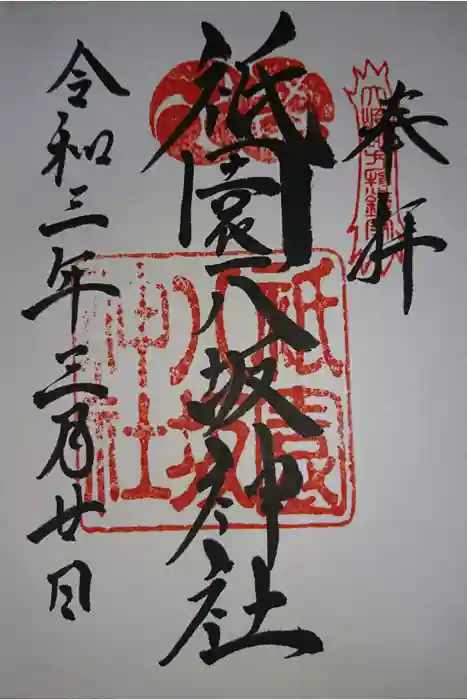 奉拝
祇園八坂神社
令和三年三月廿日
祇園
八坂
神社